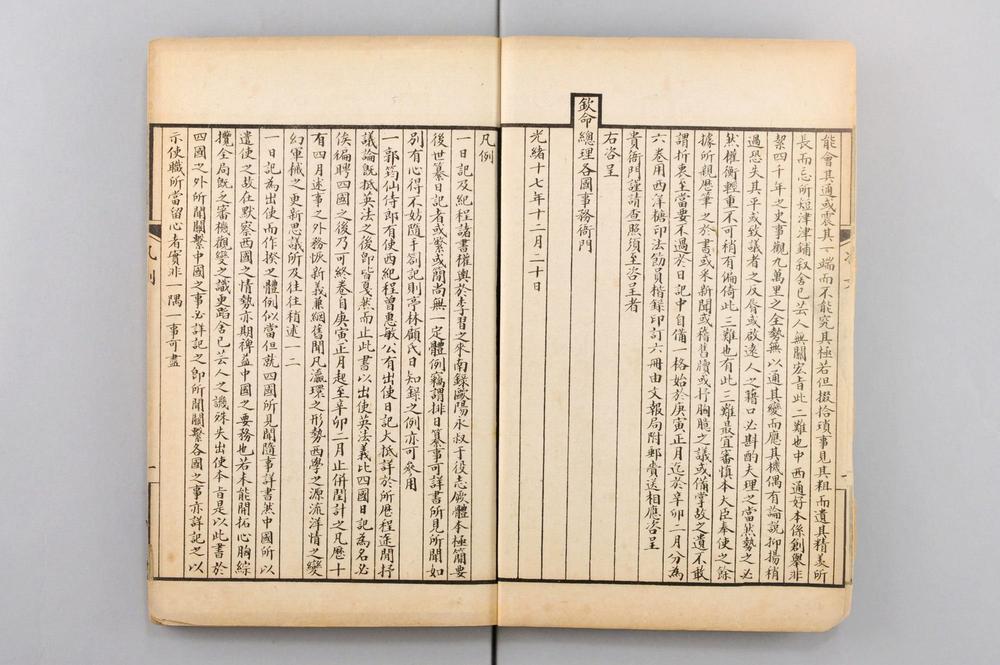 能會其通或震其一端而不能究其極若但掇拾瑣事見其粗而遺其精羨所
長而忘所短津津鋪敘舍已芸人無關宏旨此二難也中西通好本係創舉非
絜四千年之史事觀九萬里之全勢無以通其變而應其機偶有論說抑揚稍
過恐失其平或致議者之反脣或啟遠人之藉口必斟酌夫理之當然勢之必
然權衡輕重不可稍有偏倚此三難也有此三難最宜審慎本大臣奉使之餘
據所親歷筆之於書或采新聞或稽舊牘或抒胸臆之議或備掌故之遺不敢
謂折衷至當要不過於日記中自備一格始於庚寅正月迄於辛卯二月分為
六卷用西洋糖印法飭員楷錄印訂六冊由文報局附郵賷送相應咨呈
貴衙門謹請查照須至咨呈者
右咨呈
欽命總理各國事務衙門
光緒十七年十二月二十日
凡例
一日記及紀程諸書權輿於李習之來南錄歐陽永叔于役志厥體本極簡要
後世纂日記者或繁或簡尚無一定體例竊謂排日纂事可詳書所見所聞如
別有心得不妨隨手劄記則亭林顧氏日知錄之例亦可參用
一郭筠仙侍郎有使西紀程曾惠敏公有出使日記大抵詳於所歷程途閒抒
議論既抵英法之後卽皆戛然而止此書以出使英法義比四國日記為名必
俟徧聘四國之後乃可終卷自庚寅正月起至辛卯二月止併閏計之凡歷十
有四月述事之外務恢新義兼綱舊聞凡瀛環之形勢西學之源流洋情之變
幻軍械之更新思議所及往往稍述一二
一日記為出使而作揆之體例似當但就四國所見聞隨事詳書然中國所以
遣使之故在默察西國之情勢亦期裨益中國之要務也若未能開拓心胸綜
攬全局旣乏審機觀變之識更蹈舍已芸人之譏殊失出使本旨是以此書於
四國之外所聞關繫中國之事必詳記之卽所聞關繫各國之事亦詳記之以
示使職所當留心者實非一隅一事可盡
凡例
一